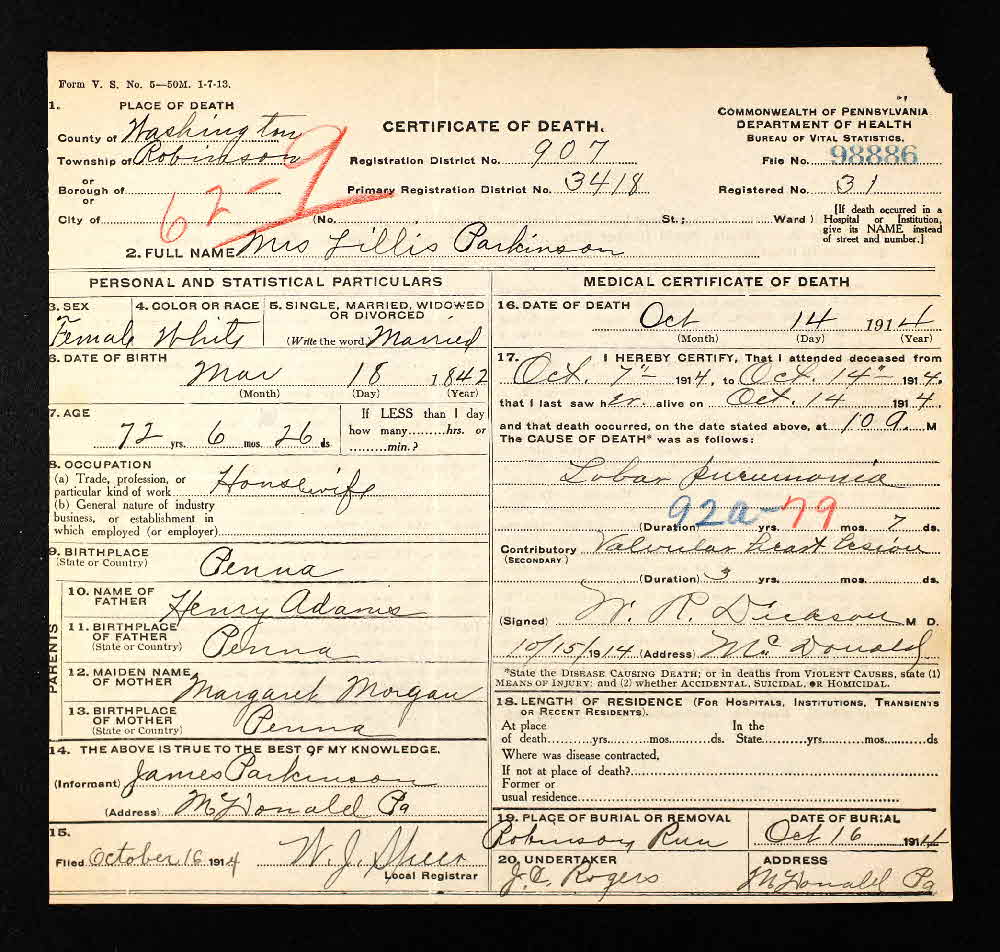 Form V. S. No. 5—50M. 1-7-13.
1. PLACE OF DEATH
County of Washington
Township of Robinson
or
Borough of
or
City of
62-9
CERTIFICATE OF DEATH.
Registration District No. 907
Primary Registration District No. 3418
(No. , St.; Ward)
COMMONWEALTH OF PENNSYLVANIA
DEPARTMENT OF HEALTH
BUREAU OF VITAL STATISTICS.
File No. 98886
Registered No. 31
[If death occurred in a
Hospital or Institution,
give its NAME instead
of street and number.]
2. FULL NAME Mrs Lillis Parkinson
PERSONAL AND STATISTICAL PARTICULARS
3. SEX
Female
4. COLOR OR RACE
White
5. SINGLE, MARRIED, WIDOWED
OR DIVORCED
(Write the word) Married
6. DATE OF BIRTH
Mar 18 1842
(Month) (Day) (Year)
7. AGE
72 yrs. 6 mos. 26 ds
If LESS than 1 day
how many hrs. or
min.?
8. OCCUPATION
(a) Trade, profession, or
particular kind of work Housewife
(b) General nature of industry
business, or establishment in
which employed (or employer)
9. BIRTHPLACE
(State or Country) Penna
PARENTS
10. NAME OF
FATHER Henry Adams
11. BIRTHPLACE
OF FATHER
(State or Country) Penna
12. MAIDEN NAME
OF MOTHER Margaret Morgan
13. BIRTHPLACE
OF MOTHER
(State or Country) Penna
14. THE ABOVE IS TRUE TO THE BEST OF MY KNOWLEDGE.
(Informant) James Parkinson
(Address) McDonald Pa
15.
Filed October 16 1914 W. J.
Local Registrar
MEDICAL CERTIFICATE OF DEATH
16. DATE OF DEATH
Oct 14 1914
(Month) (Day) (Year)
17. I HEREBY CERTIFY, That I attended deceased from
Oct. 7" 1914, to Oct. 14" 1914.
that I last saw her alive on Oct. 14 1914.
and that death occurred, on the date stated above, at 10 a. M
The CAUSE OF DEATH* was as follows:
Lobar pneumonia
92a-79
(Duration) yrs. mos. 7 ds.
Contributory Valvular heart lesion
(SECONDARY)
(Duration) 3 yrs. mos. ds.
(Signed) W. R. Dickson M D.
10/15/1914 (Address) McDonald
*State the DISEASE CAUSING DEATH; or in deaths from VIOLENT CAUSES, state (1)
MEANS OF INJURY; and (2) whether ACCIDENTAL, SUICIDAL, OR HOMICIDAL.
18. LENGTH OF RESIDENCE (FOR HOSPITALS, INSTITUTIONS, TRANSIENTS
OR RECENT RESIDENTS).
At place In the
of death yrs. mos. ds. State yrs. mos. ds
Where was disease contracted,
If not at place of death?
Former or
usual residence
19. PLACE OF BURIAL OR REMOVAL
Robinson Run
DATE OF BURIAL
Oct 16 1914
20. UNDERTAKER
J.C. Rogers
ADDRESS
McDonald Pa